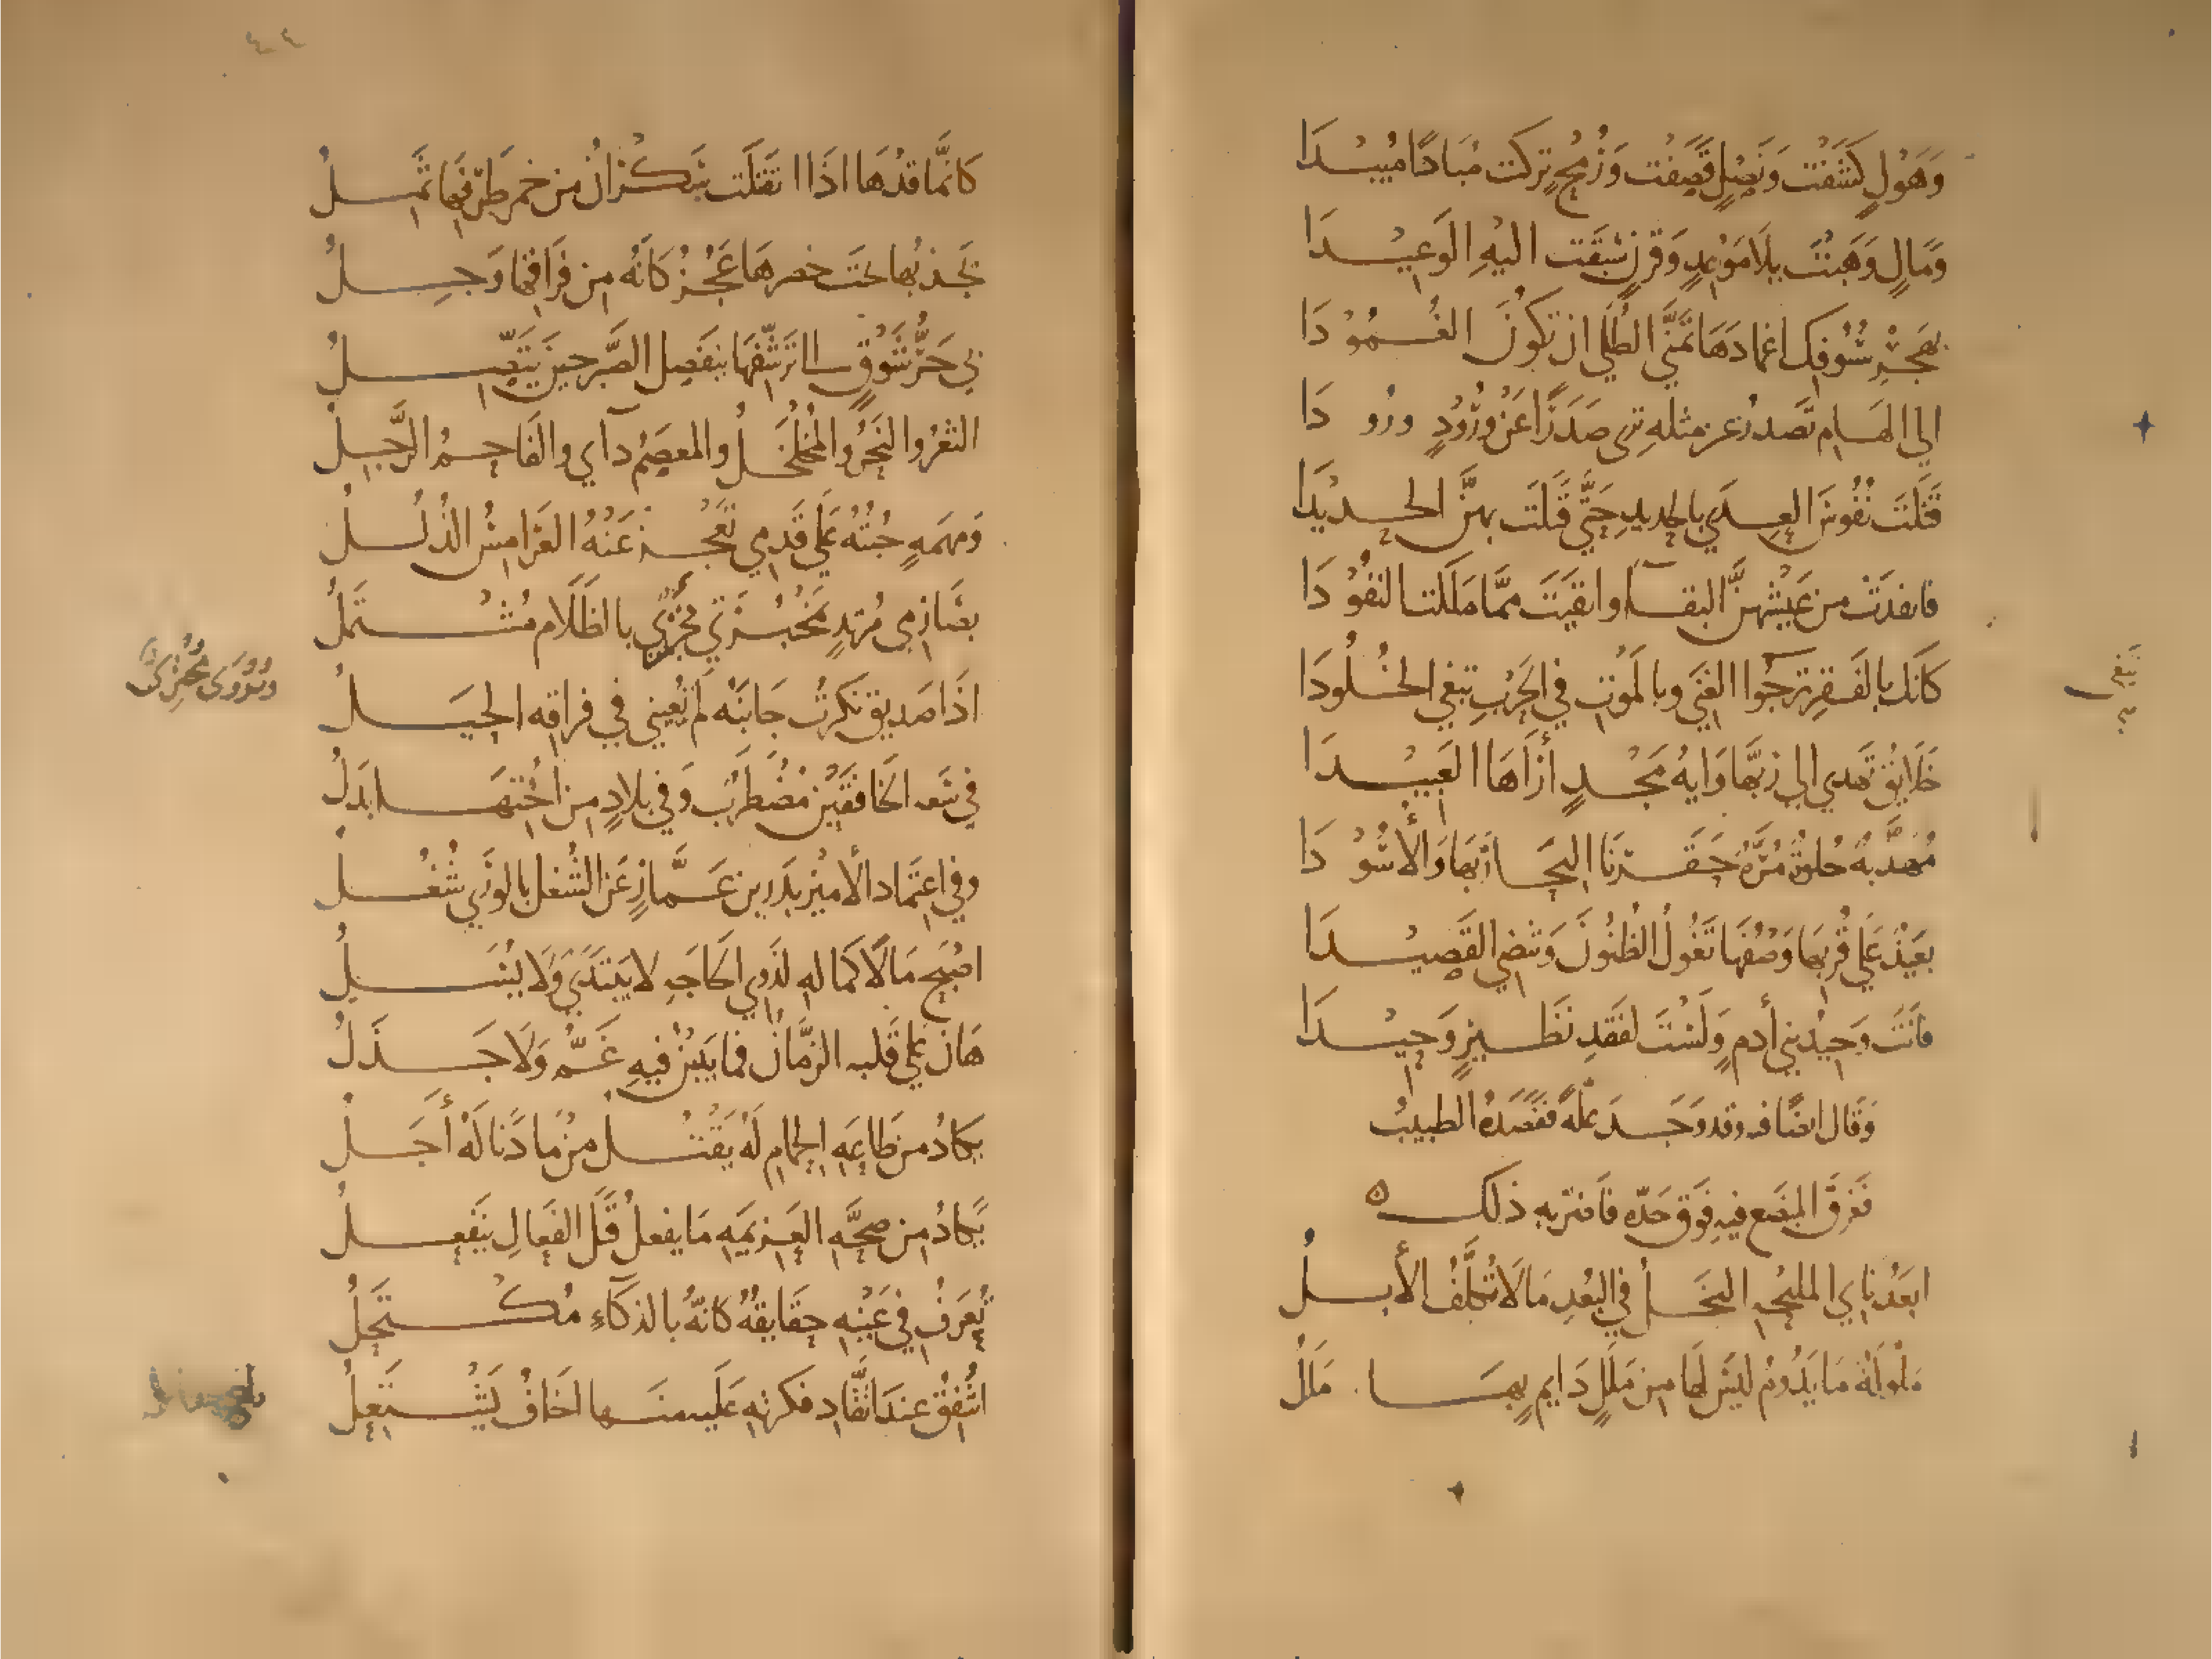 وَهَوْلٍ كَشَفْتَ وَنَصْلٍ قَصَفْتَ وَرُمْحٍ تركت مُبَادًا مُبِيْدَا
وَمَالٍ وَهَبْتَ بِلَا مَوْعِدٍ وَقِرْنٍ سَبَقْتَ اليْهِ الوَعِيْدَا
بِهَجْرِ سُيُوفِكَ اغمادَهَا تَمَنَّى الطُّلَى ان تكُونَ الغُمُوْدَا
الي الهَامِ تَصْدرُ عن مثلهِ تري صَدَرًا عَنْ وُرُودٍ وروُدَا
قَتَلْتَ نُفُوسَ العِدَي بالحديدِ حَتَّي قَتَلْتَ بهنَّ الحديْدَا
فانفدْتَ من عَيْشهنَّ البقاءَ وابقيَتَ ممَّا مَلَكتَ النفُوْدَا
كَانَّك بالفَقرِ ترجُوا الغِنَي وبالمَوْتِ في الحَرْبِ تبغي الخُلُودَا
خَلَايقُ تَهدي الي ربّهَا وَايةُ مَجْدٍ أَرَاهَا العَبِيْدَا
مُهَذَّبةٌ حُلوةٌ مُرَّةٌ حَقَرْنَا البِحَارَ بهَا وَالأُسُوْدَا
بَعِيْدٌ عَلَي قُرْبِهَا وَصْفُهَا تَغُولُ الظنُونَ وَتنضِي القَصِيْدَا
فَانْتَ وَحِيْدُ بني أدمٍ وَلَسْتَ لفَقدِ نَظِيرٍ وَحِيْدَا
وَقَال ايضًا فيه وقد وَجَدَ عِلةً فَفَصَدَهُ الطبيبُ
فَغَرقَ المِبْضَع فيهِ فَوْق حَدّه فاضرَّ بهِ ذلك ه
ابعَدُ نايِ المليْحةِ البَخَلُ في البُعدِ مَا لَا تُكَلَّفُ الأبلُ
مَلُولَةٌ مَا يَدُومُ ليْسَ لهَا من مَلَلٍ دَايمٍ بِهَا مَلَلُ
كَانَّمَا قدُّهَا اذَا انفَتلَت سَكْرَانُ من خمرِ طَرْفِهَا ثَمِلُ
يجذبُها تحتَ خصرِهَا عَجُزٌ كَانّه من فرَاقِهَا وَجِلُ
بي حَرُّ شَوْقٍ الي تَرَشّفِهَا ينفَصِل الصَّبر حينَ يَتَّصِلُ
الثغرُ والنَحْرُ والمُخَلْخَلُ والمعصَمُ دآي والفَاحِمُ الرَّجِلُ
وَمهَمَهٍ جُبْتُهُ عَلَي قَدَمِي تَعْجزُ عَنْهُ العَرَامسُ الذُلُلُ
بصَارمِي مُرْتدٍ بمَخْبُرَتي مُجْتزيٍ بالظَلَامِ مُشْتَملُ
اذَا صَديق نَكِرْتُ جَانبَهُ لم تُعْيني في فراقه الحِيَلُ
في سَعة الخَافقَيْنِ مُضْطَرَبٌ وَفي بلادٍ من اخْتِهَا بَدَلُ
وفي اعتِمَادِ الأميْر بَدْرِ بن عَمَّارٍ عَن الشُغل بالوَرَي شُغُلُ
اصْبَح مَالًا كمَالهِ لذَوِي الحَاجَةِ لا يَبْتَدي وَلَا يُسَلُ
هَانَ علَي قَلبه الزمَانُ فما يَبِيْنُ فيهِ غَمٌّ وَلَا جَذَلُ
يَكادُ من طَاعَةِ الحِمَامِ لَهُ يَقْتُلُ مَنْ مَا دَنَا لَهُ أجَلُ
يَكادُ من صِحَّةِ العَزِيمَةِ مَا يفعلُ قَبْلَ الفَعَالِ يَنْفَعِلُ
تُعرَفُ في عَيْنِهِ حَقَايقُهُ كانّهُ بالذكَاءِ مُكْتَحِلُ
اشْفِقُ عندَ اتّقَادِ فكرتهِ عَلَيه منهَا اخَافُ يَشْتَعِلُ